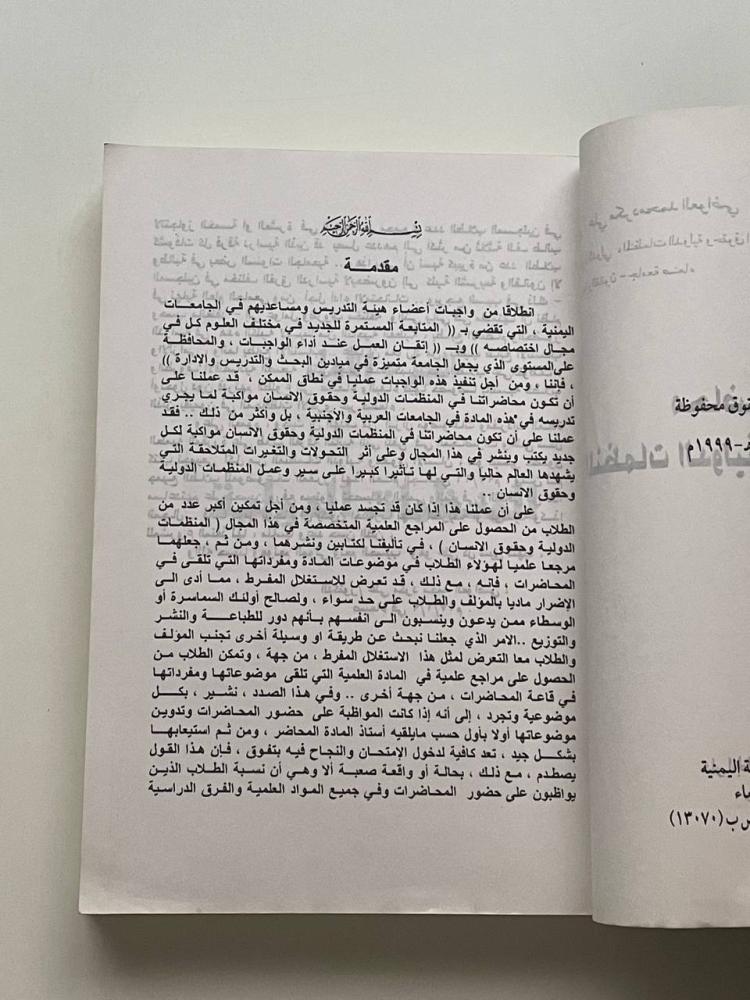 بسم الله الرحمن الرحيم
مقدمـــة
انطلاقا من واجبات أعضاء هيئة التدريس ومساعديهم في الجامعات
اليمنية ، التي تقضي بـ (( المتابعة المستمرة للجديد في مختلف العلوم كل في
مجال اختصاصه )) وبـ (( إتقان العمل عند أداء الواجبات ، والمحافظة
على المستوى الذي يجعل الجامعة متميزة في ميادين البحث والتدريس والادارة ))
، فإننا ، ومن أجل تنفيذ هذه الواجبات عمليا في نطاق الممكن ، قد عملنا على
أن تكون محاضراتنا في المنظمات الدولية وحقوق الانسان مواكبة لما يجري
تدريسه في هذه المادة في الجامعات العربية والأجنبية ، بل وأكثر من ذلك .. فقد
عملنا على أن تكون محاضراتنا في المنظمات الدولية وحقوق الانسان مواكبة لكل
جديد يكتب وينشر في هذا المجال وعلى أثر التحولات والتغيرات المتلاحقة التي
يشهدها العالم حاليا والتي لها تأثيرا كبيرا على سير وعمل المنظمات الدولية
وحقوق الانسان ..
على أن عملنا هذا إذا كان قد تجسد عمليا ، ومن أجل تمكين أكبر عدد من
الطلاب من الحصول على المراجع العلمية المتخصصة في هذا المجال ( المنظمات
الدولية وحقوق الانسان ) ، في تأليفنا لكتابين ونشرهما ، ومن ثم ، جعلهما
مرجعا علميا لهؤلاء الطلاب في موضوعات المادة ومفرداتها التي تلقى في
المحاضرات ، فإنه ، مع ذلك ، قد تعرض للإستغلال المفرط ، مما أدى الى
الإضرار ماديا بالمؤلف والطلاب على حد سواء ، ولصالح أولئك السماسرة أو
الوسطاء ممن يدعون وينسبون الى انفسهم بأنهم دور للطباعة والنشر
والتوزيع ..الامر الذي جعلنا نبحث عن طريقة او وسيلة أخرى تجنب المؤلف
والطلاب معا التعرض لمثل هذا الاستغلال المفرط ، من جهة ، وتمكن الطلاب من
الحصول على مراجع علمية في المادة العلمية التي تلقى موضوعاتها ومفرداتها
في قاعة المحاضرات ، من جهة أخرى .. وفي هذا الصدد ، نشير ، بكل
موضوعية وتجرد ، إلى أنه إذا كانت المواظبة على حضور المحاضرات وتدوين
موضوعاتها أولا بأول حسب مايلقيه أستاذ المادة المحاضر ، ومن ثم استيعابها
بشكل جيد ، تعد كافية لدخول الإمتحان والنجاح فيه بتفوق ، فإن هذا القول
يصطدم ، مع ذلك ، بحالة أو واقعة صعبة ألا وهي أن نسبة الطلاب الذين
يواظبون على حضور المحاضرات وفي جميع المواد العلمية والفرق الدراسية
محفوظة
١٩٩٩م
اليمنية
ب (١٣٠٧٠)